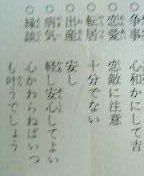 ○争事 心和かにして吉
○恋愛 恋敵に注意
○転居 十分でない
○出産 安し
○病気 軽し安心してよい
○縁談 心かわらねばいつ
も叶うでしょう